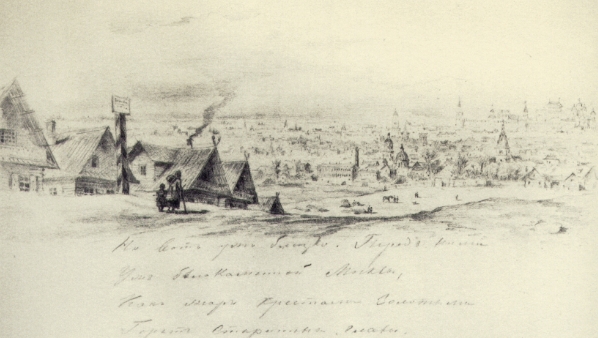 Но вотъ ужъ близко. Передъ ними
Ужъ бѣлокаменной Москвы,
Какъ жаръ крестами Золотыми
Горятъ старинныя главы.